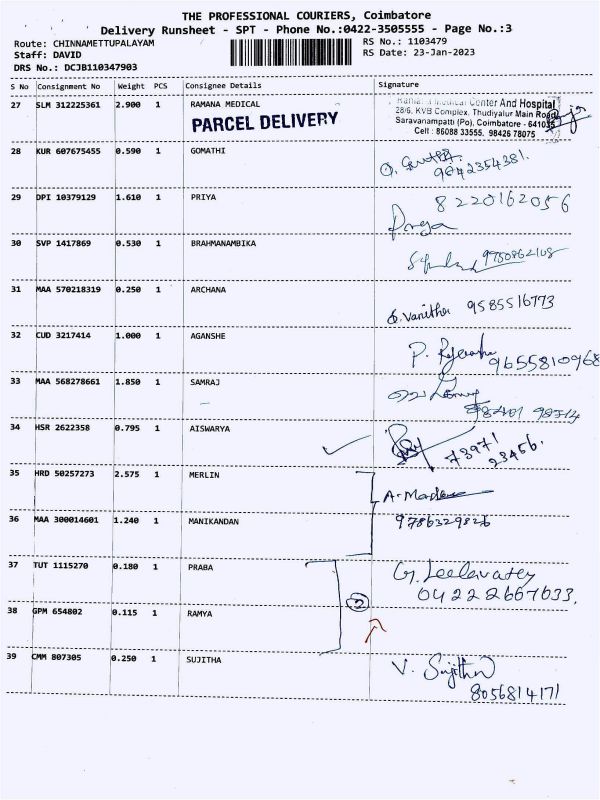 THE PROFESSIONAL COURIERS, Coimbatore
Delivery Runsheet - SPT - Phone No.:0422-3505555 - Page No.:3
Route: CHINNAMETTUPALAYAM
Staff: DAVID
DRS No.: DCJB110347903
RS No.: 1103479
RS Date: 23-Jan-2023
S No Consignment No Weight PCS Consignee Details Signature
27 SLM 312225361 2.900 1 RAMANA MEDICAL
PARCEL DELIVERY
Medical Center And Hospital
28/6, KVB Complex, Thudiyalur Main Road
Saravanampatti (Po), Coimbatore - 641035
Cell : 86088 33555, 98426 78075
28 KUR 607675455 0.590 1 GOMATHI
9842354381.
29 DPI 10379129 1.610 1 PRIYA
8220162056
Priya
30 SVP 1417869 0.530 1 BRAHMANAMBIKA
9750862108
31 MAA 570218319 0.250 1 ARCHANA
Vanitha 9585516773
32 CUD 3217414 1.000 1 AGANSHE
P. 9655810968
33 MAA 568278661 1.850 1 SAMRAJ
98401 98714
34 HSR 2622358 0.795 1 AISWARYA
73971
23456.
35 HRD 50257273 2.575 1 MERLIN
A. 
36 MAA 300014601 1.240 1 MANIKANDAN
9786329826
37 TUT 1115270 0.180 1 PRABA
G. Leelavathy
04222667633.
2
38 GPM 654802 0.115 1 RAMYA
39 CMM 807305 0.250 1 SUJITHA
V. Sujitha
8056814171